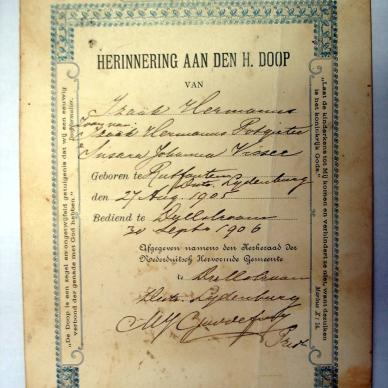 HERINNERING AAN DEN H. DOOP
VAN
Izaak Hermanus
Zoon van
Izaak Hermanus Potgieter
Susara Johanna Visser
Geboren te
Distr. Lydenburg
den 27 Aug. 1905
Bediend te Dullstroom
30 Sept 1906
Afgegeven namens den Kerkeraad der
Nederduitsch Hervormde Gemeente
te Dullstroom
Distr. Lydenburg
"De Doop is een zegel en ongetwijfeld getuigenis dat wij een eeuwig
verbond der genade met God hebben."
Formulier.
"Laat de kinderkens tot Mij komen en verhindert ze niet, want derzulken
is het koninkrijk Gods."
Markus X : 14.